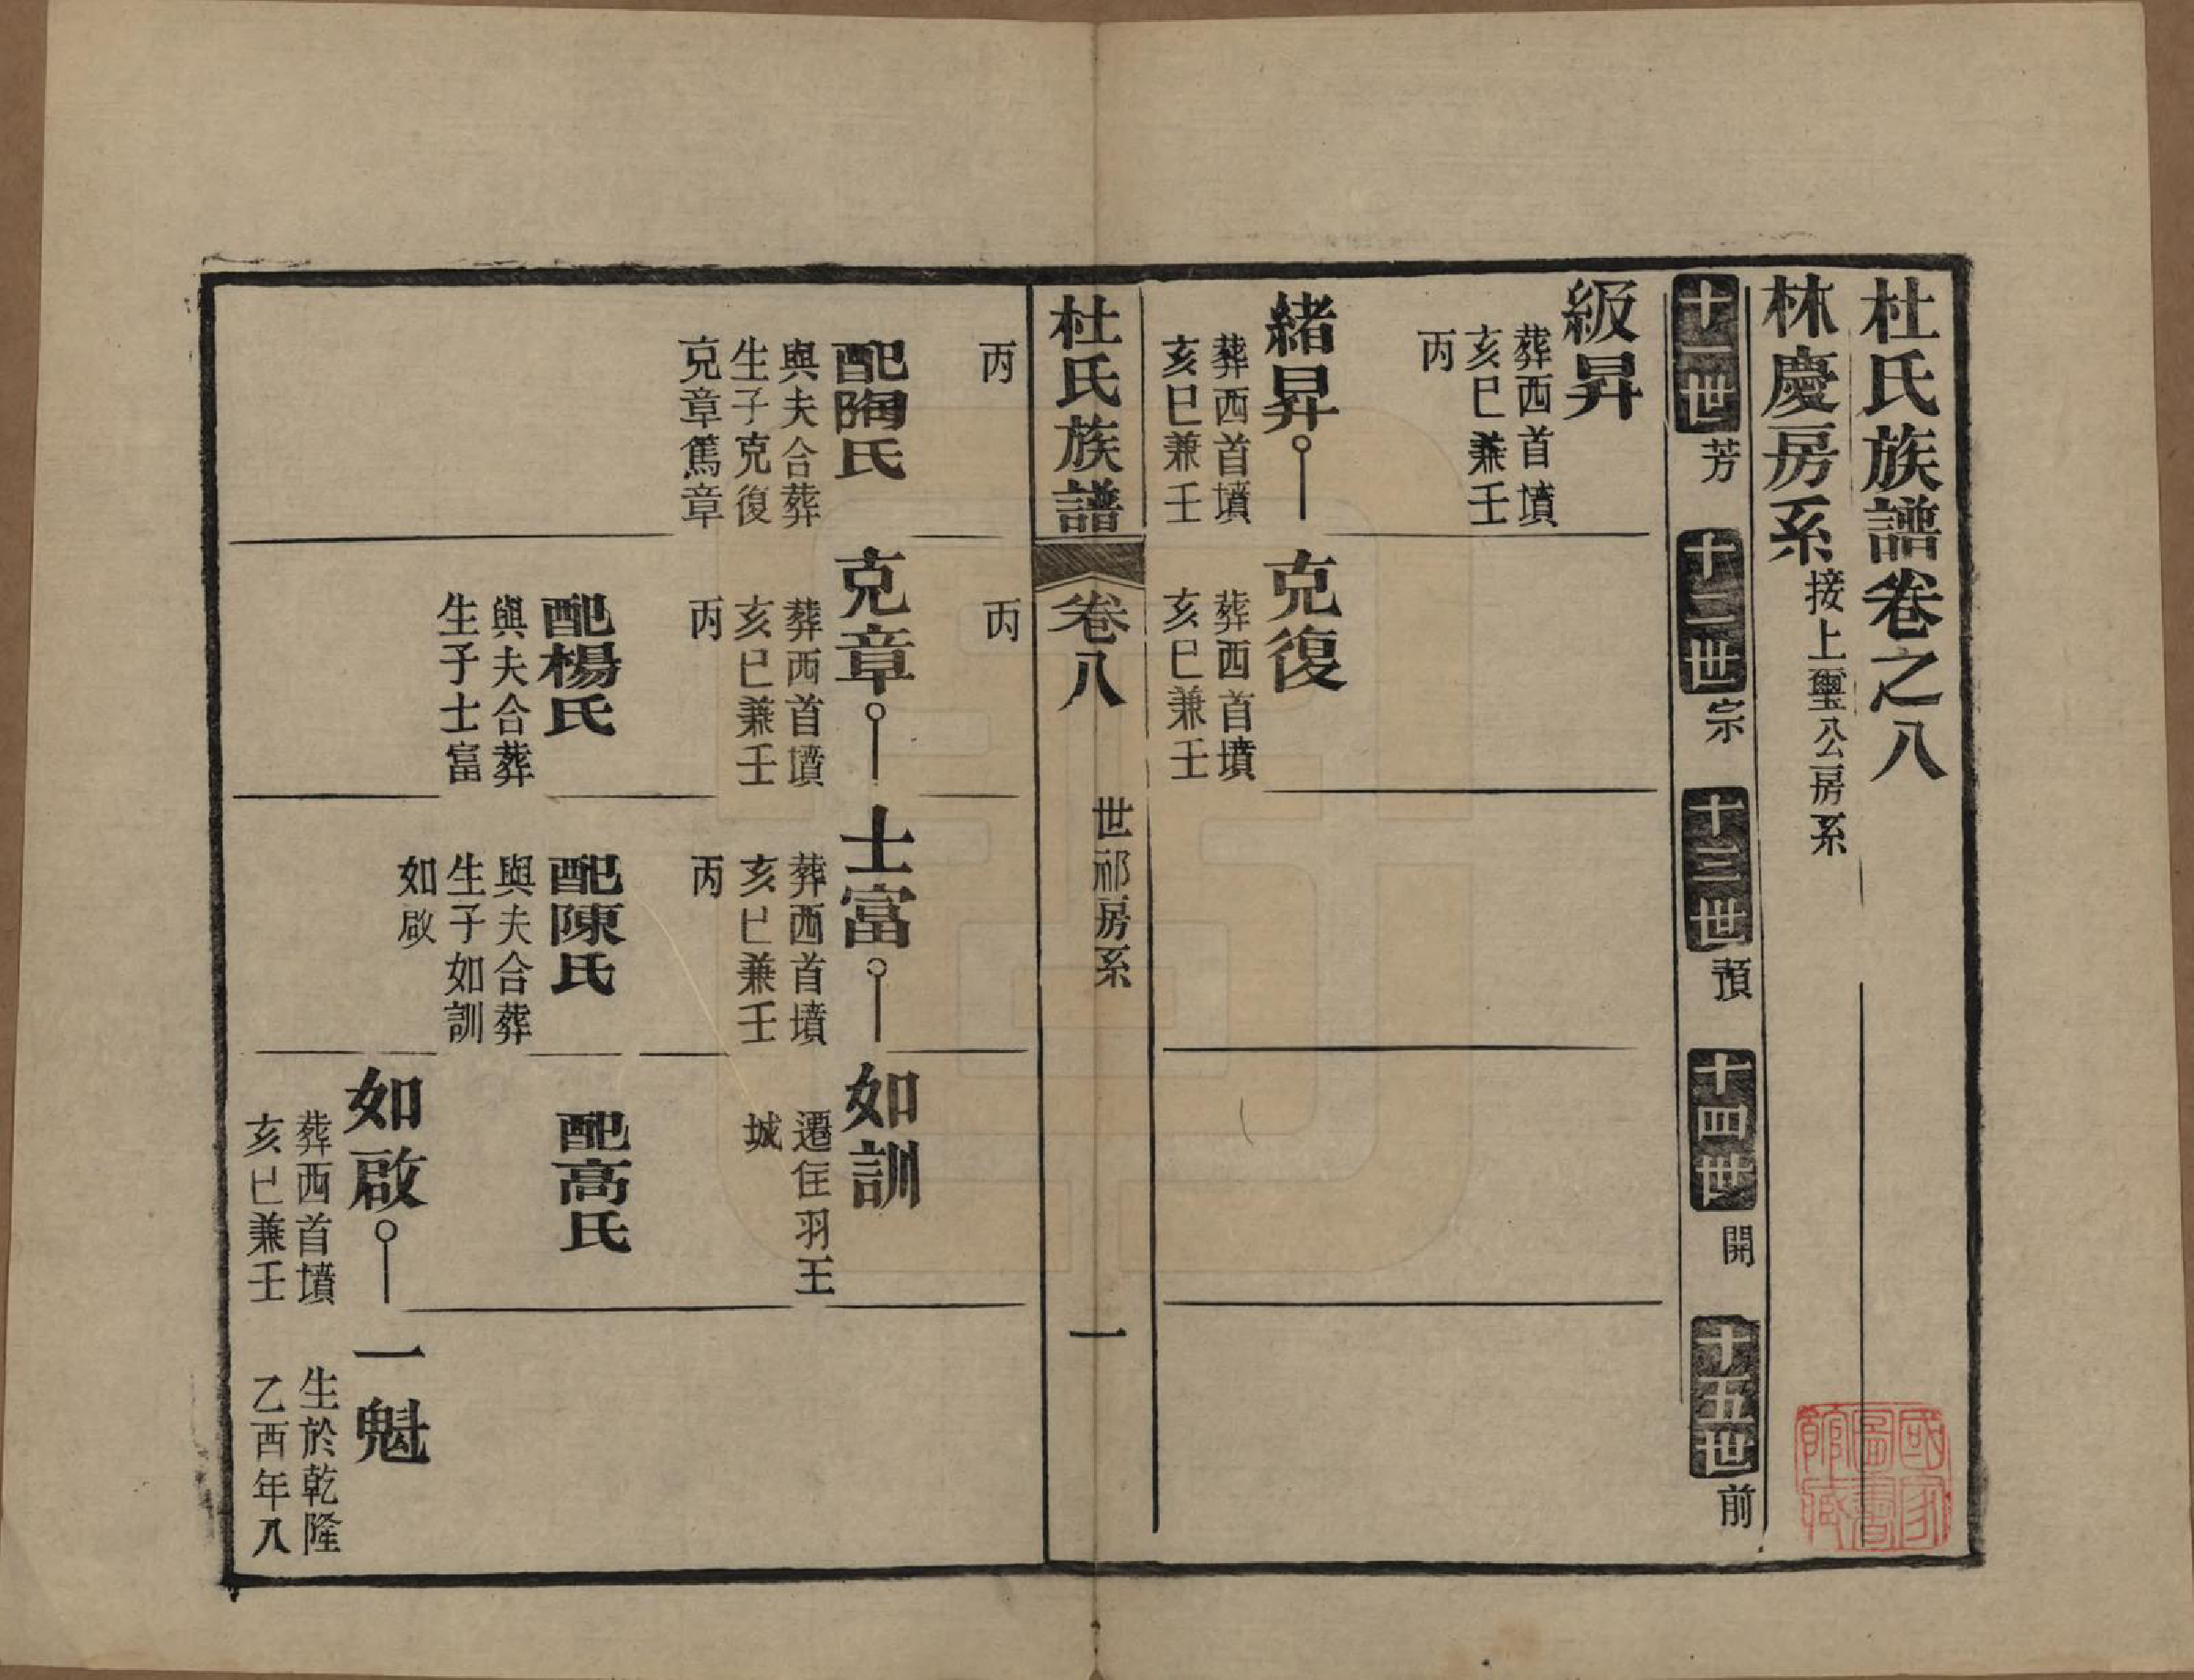 杜氏族譜卷之八
林慶房系接上璽公房系
十一世芳
十二世宗
十三世預
十四世開
十五世前
級昇
葬西首墳
亥巳兼壬
丙
緒昇
葬西首墳
亥巳兼壬
克復
葬西首墳
亥巳兼壬
杜氏族譜
卷八
世祁房系
一
丙
配陶氏
與夫合葬
生子克復
克章篤章
丙
克章
葬西首墳
亥巳兼壬
丙
配楊氏
與夫合葬
生子士富
士富
葬西首墳
亥巳兼壬
丙
配陳氏
與夫合葬
生子如訓
如啟
如訓
遷住羽王
城
配高氏
如啟
葬西首墳
亥巳兼壬
一魁
生於乾隆
乙酉年八
國家
圖書
館藏